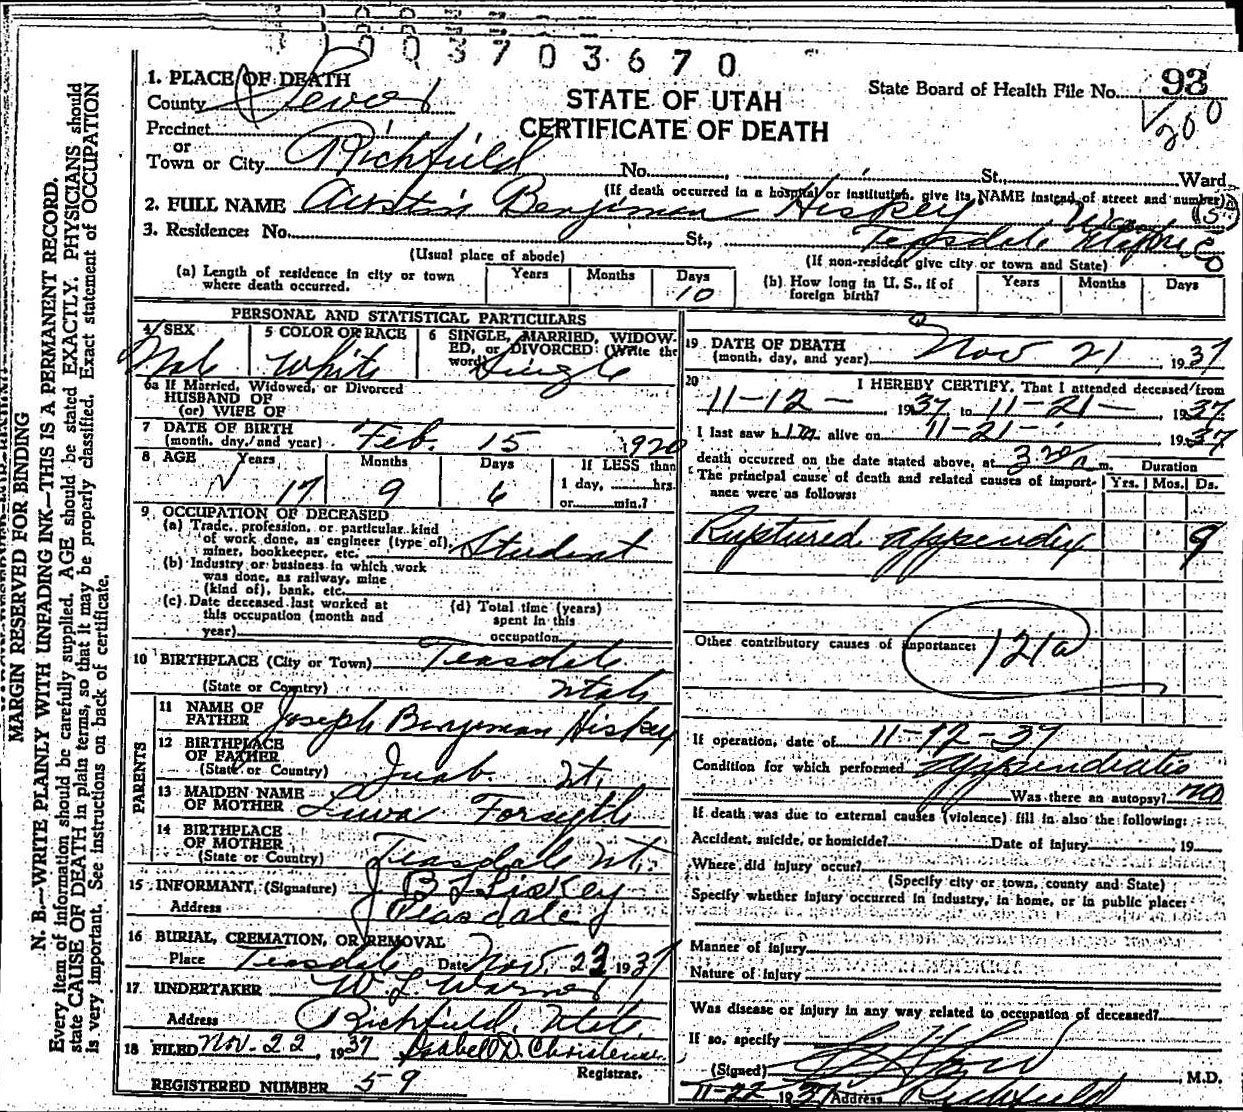 1003703670
1. PLACE OF DEATH
County Sevier
State Board of Health File No. 93
STATE OF UTAH
CERTIFICATE OF DEATH
200
Precinct
or
Town or City Richfield No. St., Ward
(If death occurred in a hospital or institution, give its NAME instead of street and number)
2. FULL NAME Austin Benjiman Hiskey
3. Residence: No. St., Teasdale Wayne
(Usual place of abode) (If non-resident give city or town and State)
(a) Length of residence in city or town where death occurred. Years Months Days 10
(b) How long in U. S., if of foreign birth? Years Months Days
PERSONAL AND STATISTICAL PARTICULARS
4 SEX Male
5 COLOR OR RACE White
6 SINGLE, MARRIED, WIDOWED, or DIVORCED: (Write the word) Single
6a If Married, Widowed, or Divorced
HUSBAND OF
(or) WIFE OF
7 DATE OF BIRTH
(month, day, and year) Feb. 15 1920
8 AGE Years 17 Months 9 Days 6 If LESS than 1 day, hrs. or min.?
9 OCCUPATION OF DECEASED
(a) Trade, profession, or particular kind of work done, as engineer (type of), miner, bookkeeper, etc. Student
(b) Industry or business in which work was done, as railway, mine (kind of), bank, etc.
(c) Date deceased last worked at this occupation (month and year)
(d) Total time (years) spent in this occupation
10 BIRTHPLACE (City or Town) Teasdale
(State or Country) Utah
PARENTS
11 NAME OF FATHER Joseph Benjiman Hiskey
12 BIRTHPLACE OF FATHER
(State or Country) Juab Ut.
13 MAIDEN NAME OF MOTHER Forsyth
14 BIRTHPLACE OF MOTHER
(State or Country) Teasdale Ut.
15 INFORMANT, (Signature) J B Hiskey
Address Teasdale
16 BURIAL, CREMATION, OR REMOVAL
Place Teasdale Date Nov. 23 1937
17. UNDERTAKER W. L. Warnock
Address Richfield, Utah
18 FILED Nov. 22, 1937 Isabell D. Christensen
Registrar.
REGISTERED NUMBER 59
19 DATE OF DEATH
(month, day, and year) Nov 21 1937
20 I HEREBY CERTIFY, That I attended deceased from
11-12- 1937, to 11-21-, 1937
I last saw him alive on 11-21- 1937
death occurred on the date stated above, at m. Duration
The principal cause of death and related causes of importance were as follows: Yrs. Mos. Ds.
Ruptured appendix 9
Other contributory causes of importance: 121a
If operation, date of 11-12-37
Condition for which performed appendicitis
Was there an autopsy? no
If death was due to external causes (violence) fill in also the following:
Accident, suicide, or homicide? Date of injury , 19
Where did injury occur?
(Specify city or town, county and State)
Specify whether injury occurred in industry, in home, or in public place:
Manner of injury
Nature of injury
Was disease or injury in any way related to occupation of deceased?
If so, specify
(Signed) , M.D.
11-22 1937 Address Richfield
MARGIN RESERVED FOR BINDING
N. B.—WRITE PLAINLY WITH UNFADING INK—THIS IS A PERMANENT RECORD.
Every item of information should be carefully supplied. AGE should be stated EXACTLY. PHYSICIANS should
state CAUSE OF DEATH in plain terms, so that it may be properly classified. Exact statement of OCCUPATION
is very important. See instructions on back of certificate.